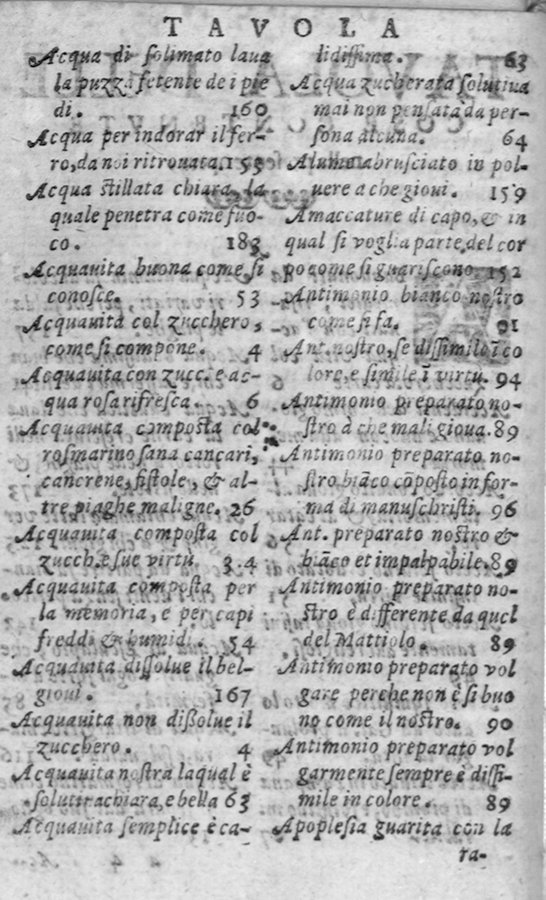 TAVOLA
Acqua di solimato laua
la puzza fetente de i pie
di. 160
Acqua per indorar il fer-
ro, da noi ritrouata. 155
Acqua stillata chiara, la
quale penetra come fuo-
co. 183
Acquauita buona come si
conosce. 53
Acquauita col zucchero,
come si compone. 4
Acquauita con zucc. e ac-
qua rosa rifresca. 6
Acquauita composta col
rosmarino sana cancari,
cancrene, fistole, & al-
tre piaghe maligne. 26
Acquauita composta col
zucch. e sue virtù 3.4
Acquauita composta per
la memoria, e per capi
freddi & humidi. 54
Acquauita dissolue il bel-
gioui. 167
Acquauita non dißolue il
zucchero. 4
Acquauita nostra laqual è
solutiua chiara, e bella 63
Acquauita semplice è ca-
lidissima. 63
Acqua zucherata solutiua
mai non pensata da per-
sona alcuna. 64
Alume abrusciato in pol-
uere a che gioui. 159
Amaccature di capo, & in
qual si voglia parte del cor
po come si guariscono. 152
Antimonio bianco nostro
come si fa. 91
Ant. nostro, se dissimile ī co
lore, e simile ī virtù. 94
Antimonio preparato no-
stro à che mali gioua. 89
Antimonio preparato no-
stro biāco cōposto in for-
ma di manuschristi. 96
Ant. preparato nostro &
biāco et impalpabile. 89
Antimonio preparato no-
stro è differente da quel
del Mattiolo. 89
Antimonio preparato vol
gare perche non è sì buo
no come il nostro. 90
Antimonio preparato vol
garmente sempre è dissi-
mile in colore. 89
Apoplesia guarita con la
ra-